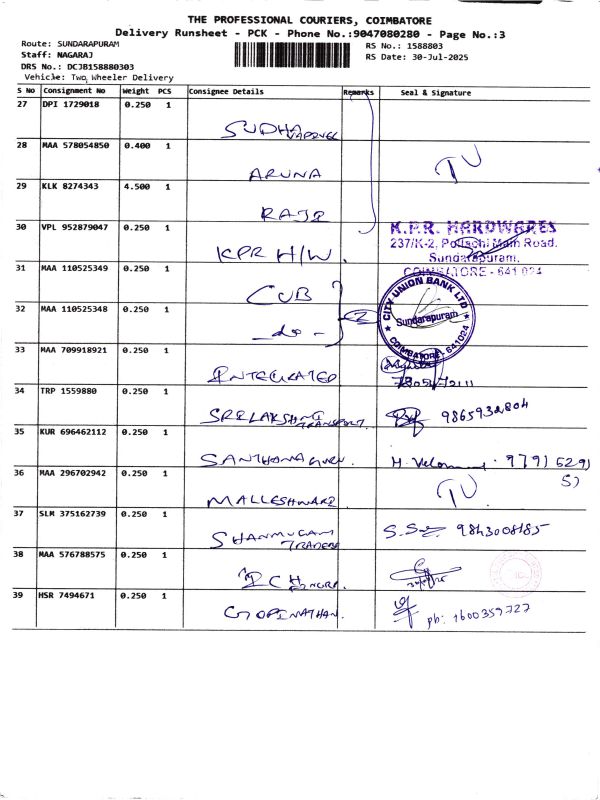 THE PROFESSIONAL COURIERS, COIMBATORE
Delivery Runsheet - PCK - Phone No.:9047080280 - Page No.:3
Route: SUNDARAPURAM
Staff: NAGARAJ
DRS No.: DCJB158880303
Vehicle: Two Wheeler Delivery
RS No.: 1588803
RS Date: 30-Jul-2025
S No Consignment No Weight PCS Consignee Details Remarks Seal & Signature
27 DPI 1729018 0.250 1
SUDHA
28 MAA 578054850 0.400 1
ARUNA TU
29 KLK 8274343 4.500 1
RAJE
30 VPL 952879047 0.250 1
KPR H/W
K.P.R. HARDWARES
237/K-2, Pollachi Main Road.
Sundarapuram.
COIMBATORE - 641 024
31 MAA 110525349 0.250 1
CUB
32 MAA 110525348 0.250 1
- do - 2
CITY UNION BANK LTD
Sundarapuram
COIMBATORE - 641024
33 MAA 709918921 0.250 1
INTEGRATED
34 TRP 1559880 0.250 1
SRI LAKSHMI TRANSPORT. 9865932804
35 KUR 696462112 0.250 1
SANTHONA GURU. 9791 5291
51
36 MAA 296702942 0.250 1
MALLESHWARI TU
37 SLM 375162739 0.250 1
SHANMUGAM TRADERS 9843008185
38 MAA 576788575 0.250 1
39 HSR 7494671 0.250 1
GOPINATHAN. ph: 1600359727